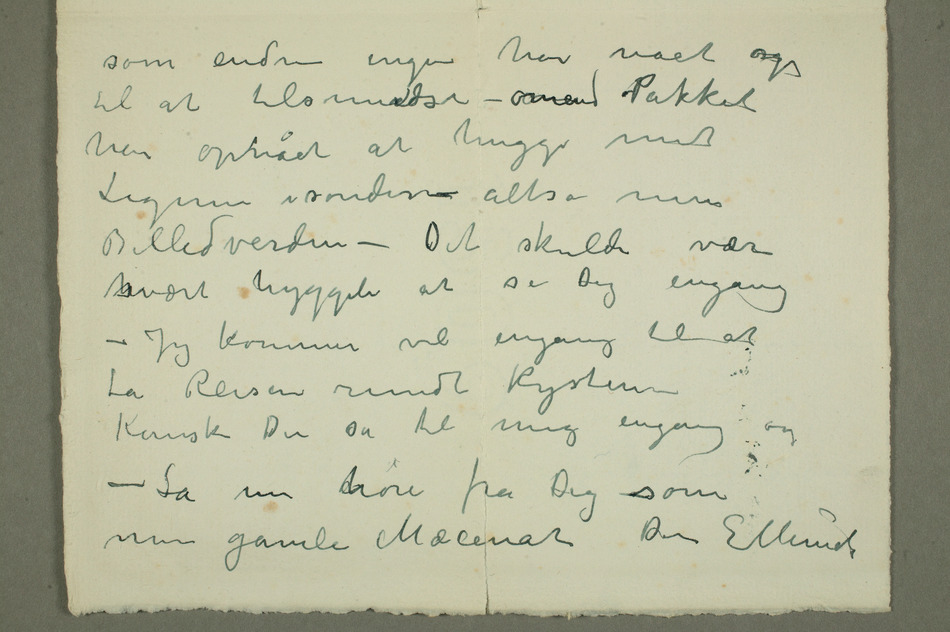 som endnu ingen har naaet og
til at tilsmudse – omend Pakket
har ophået at hugge med
Legeme isønder – altså min
Billedverden – Det skulde være
svært hyggeli at se Dig engang
– Jeg kommer vel engang til at
ta Reisen rundt Kysten
Kanske Du så til mig engang og
– La nu høre fra Dig som
min gamle Mæcenat Din EMunch